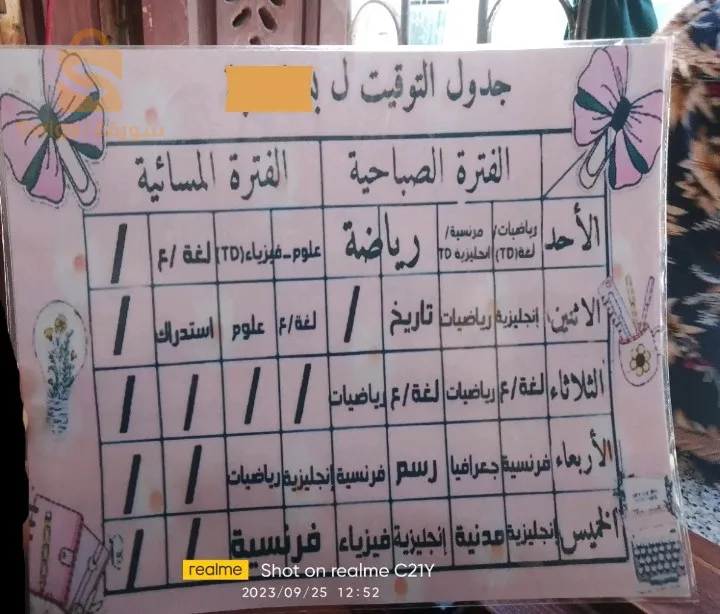 جدول التوقيت ل
سويكة
الفترة الصباحية الفترة المسائية
الأحد رياضيات/ لغة(TD) فرنسية/ انجليزية TD رياضة علوم-فيزياء(TD) لغة/ع /
الاثنين إنجليزية رياضيات تاريخ / لغة/ع علوم استدراك /
الثلاثاء لغة/ع رياضيات لغة/ع رياضيات / / / /
الأربعاء فرنسية جغرافيا رسم فرنسية إنجليزية رياضيات / /
الخميس إنجليزية مدنية إنجليزية فيزياء فرنسية / /
realme Shot on realme C21Y
2023/09/25 12:52